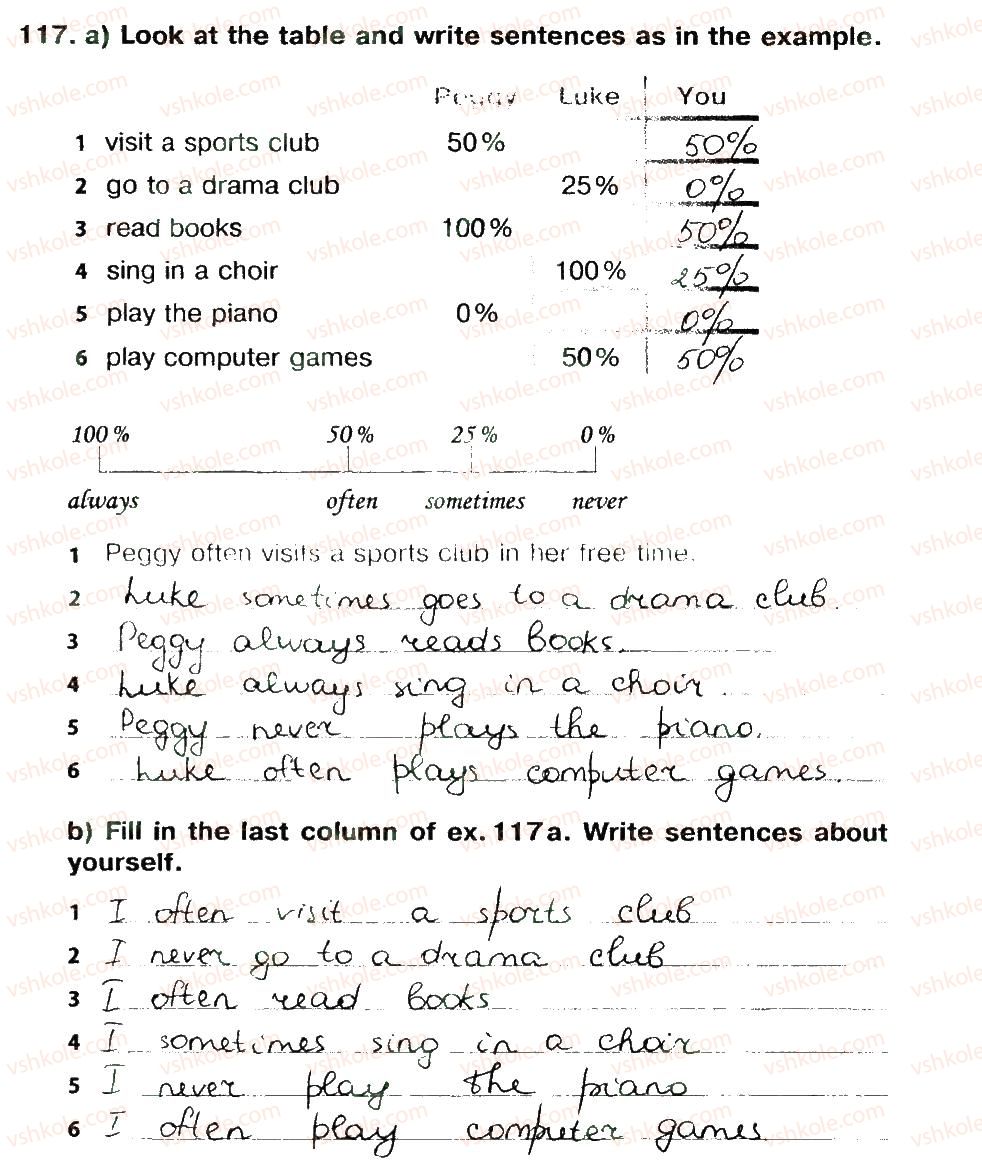 117. a) Look at the table and write sentences as in the example.
Peggy Luke You
1 visit a sports club 50% 50%
2 go to a drama club 25% 0%
3 read books 100% 50%
4 sing in a choir 100% 25%
5 play the piano 0% 0%
6 play computer games 50% 50%
100% 50% 25% 0%
always often sometimes never
1 Peggy often visits a sports club in her free time.
2 Luke sometimes goes to a drama club.
3 Peggy always reads books.
4 Luke always sing in a choir.
5 Peggy never plays the piano.
6 Luke often plays computer games.
b) Fill in the last column of ex. 117a. Write sentences about
yourself.
1 I often visit a sports club
2 I never go to a drama club
3 I often read books
4 I sometimes sing in a choir
5 I never play the piano
6 I often play computer games.
vshkole.com